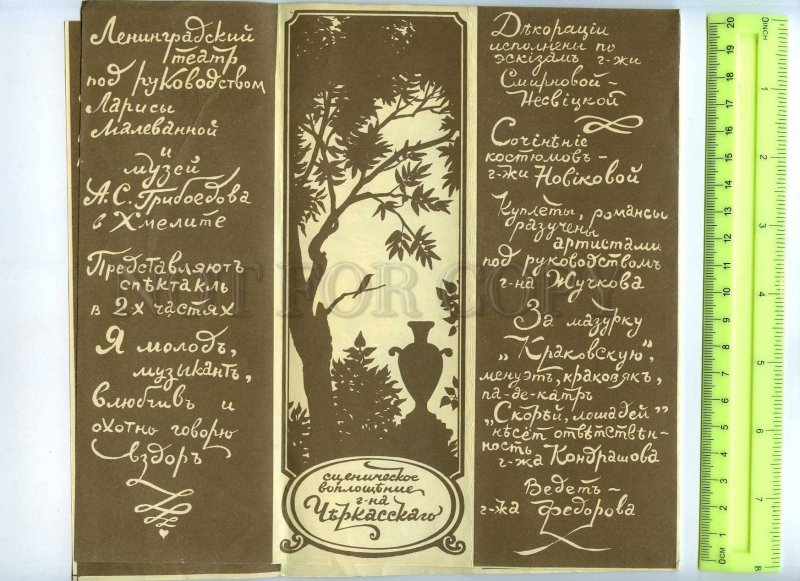 Ленинградский
театр
под руководством
Ларисы
Малеванной
и
музей
А.С. Грибоедова
в Хмелите
Представляютъ
спѣктакль
в 2-х частях
Я молодъ,
музыкантъ,
влюбчивъ и
охотно говорю
вздоръ
сценическое
воплощѣние
г-на
Чѣркасскаго
Дѣкорацiи
исполнены по
эскизамъ г-жи
Смирновой-
Несвiцкой
Сочiнѣнiе
костюмовъ -
г-жи Новiковой
Куплеты, романсы
разучены
артистами
под руководствомъ
г-на Жучкова
За мазурку
"Краковскую",
менуэтъ, краковякъ,
па-де-катръ
"Скорѣй, лошадей"
нѣсетъ отвѣтствѣн-
ность
г-жа Кондрашова
Ведетъ -
г-жа Федорова
NOT FOR COPY
0CM 1 2 3 4 5 6 7 8 9 10 11 12 13 14 15 16 17 18 19 20
0INCH 1 2 3 4 5 6 7 8